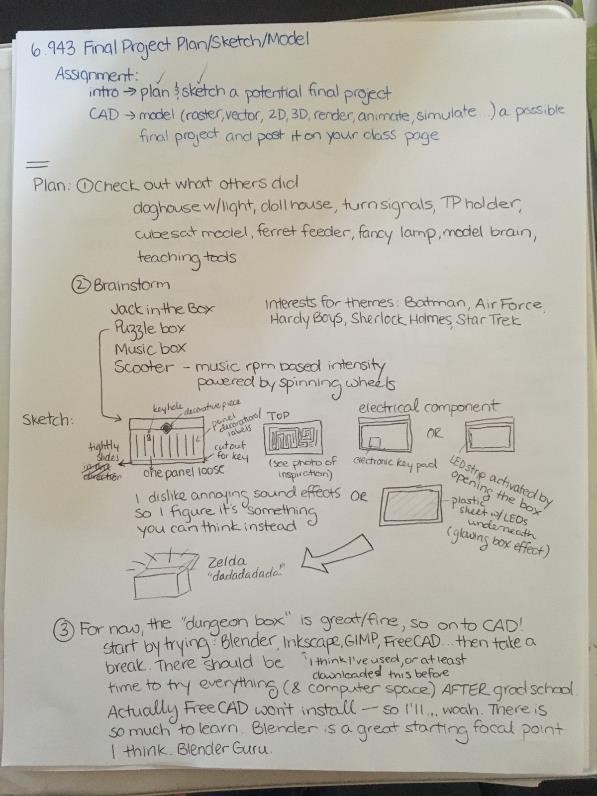 6.943 Final Project Plan/Sketch/Model
Assignment:
intro → plan & sketch a potential final project
CAD → model (raster, vector, 2D, 3D, render, animate, simulate...) a possible
final project and post it on your class page
Plan: ① Check out what others did
doghouse w/light, dollhouse, turn signals, TP holder,
cubesat model, ferret feeder, fancy lamp, model brain,
teaching tools
② Brainstorm
Jack in the Box
Puzzle box
Music box
Scooter - music rpm based intensity
powered by spinning wheels
Interests for themes: Batman, Air Force,
Hardy Boys, Sherlock Holmes, Star Trek
Sketch:
keyhole
decorative piece
panel
decorational
labels
cutout
for key
tightly
slides
direction
one panel loose
TOP
(see photo of
inspiration)
electrical component
OR
electronic key pad
LED strip activated by
opening the box
I dislike annoying sound effects
so I figure it's something
you can think instead
OR
plastic
sheet w/LEDs
underneath
(glowing box effect)
Zelda
"dadadadada!"
③ For now, the "dungeon box" is great/fine, so onto CAD!
start by trying: Blender, Inkscape, GIMP, FreeCAD... then take a
break. There should be
I think I've used, or at least
downloaded this before
time to try everything (& computer space) AFTER grad school.
Actually FreeCAD won't install — so I'll... woah. There is
so much to learn. Blender is a great starting focal point
I think. Blender Guru.